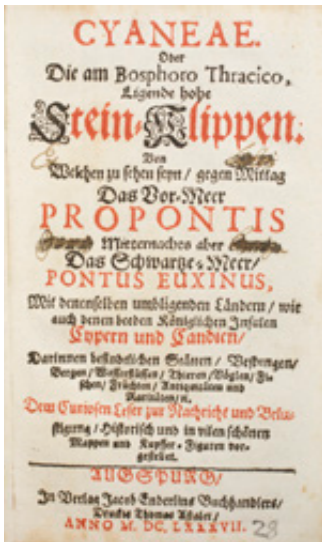 CYANEAE.
Oder
Die am Bosphoro Thracico,
Ligende hohe
Stein-Klippen:
Von
Welchen zu sehen seyn / gegen Mittag
Das Vor-Meer
PROPONTIS
Mitternachts aber
Das Schwartze-Meer/
PONTUS EUXINUS,
Mit denenselben umbligenden Ländern / wie
auch denen beeden Königlichen Insulen
Cypern und Candien/
Darinnen befindtlichen Städten / Vestungen/
Bergen/ Wasserflüssen/ Thieren/ Vöglen/ Fi-
schen/ Früchten/ Antiquitäten und
Raritäten/ ꝛc.
Dem Curiosen Leser zur Nachricht und Belu-
stigung/ Historisch und in vilen schönen
Mappen und Kupffer-Figuren vor-
gestellet.
AUGSPURG/
In Verlag Jacob Enderlins Buchhandlers/
Druckts Thomas Astaler/
ANNO M. DC. LXXXVII.
28